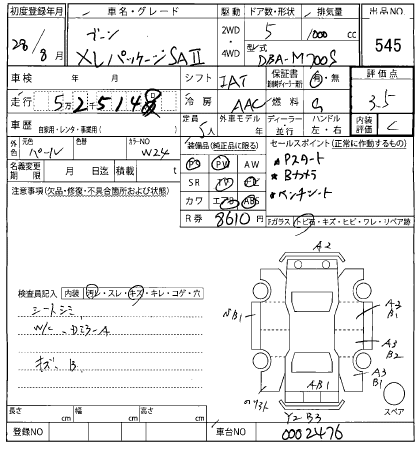 初度登録年月 車名・グレード 駆動 ドア数・形状 排気量 出品NO
28/8月 ブーン XLパッケージSAⅡ 2WD 4WD 5 1000 cc 545
型式 DBA-M700S
車検 年 月 シフト IAT 保証書 有・無 評価点
走行 5万2千514 冷房 AAC 燃料 G 3.5
車歴 自家用・レンタ・事業用( ) 定員 5人 外車モデル 年 ディーラー 並行 ハンドル 左・右 内装評価 C
外色 元色 パール 色替 カラーNO W24 装備品(純正品に限る) セールスポイント(正常に作動するもの)
PS PW AW *Pスタート
名義変更期限 月 日迄 積載 t SR TV ナビ *Bカメラ
注意事項(欠品・修復・不具合箇所および状態) カワ エアB ABS *ベンチシート
R券 8610円 Fガラス トビ石・キズ・ヒビ・ワレ・リペア跡
A2
検査員記入 内装 汚レ・スレ・キズ・キレ・コゲ・穴 B1 A3 B1
シートシミ
W/C
A3 B2
キズ B A3 B1
AB1
スペア
Y2 B3
長さ cm 幅 cm 高さ cm
登録NO 車台NO 0002476